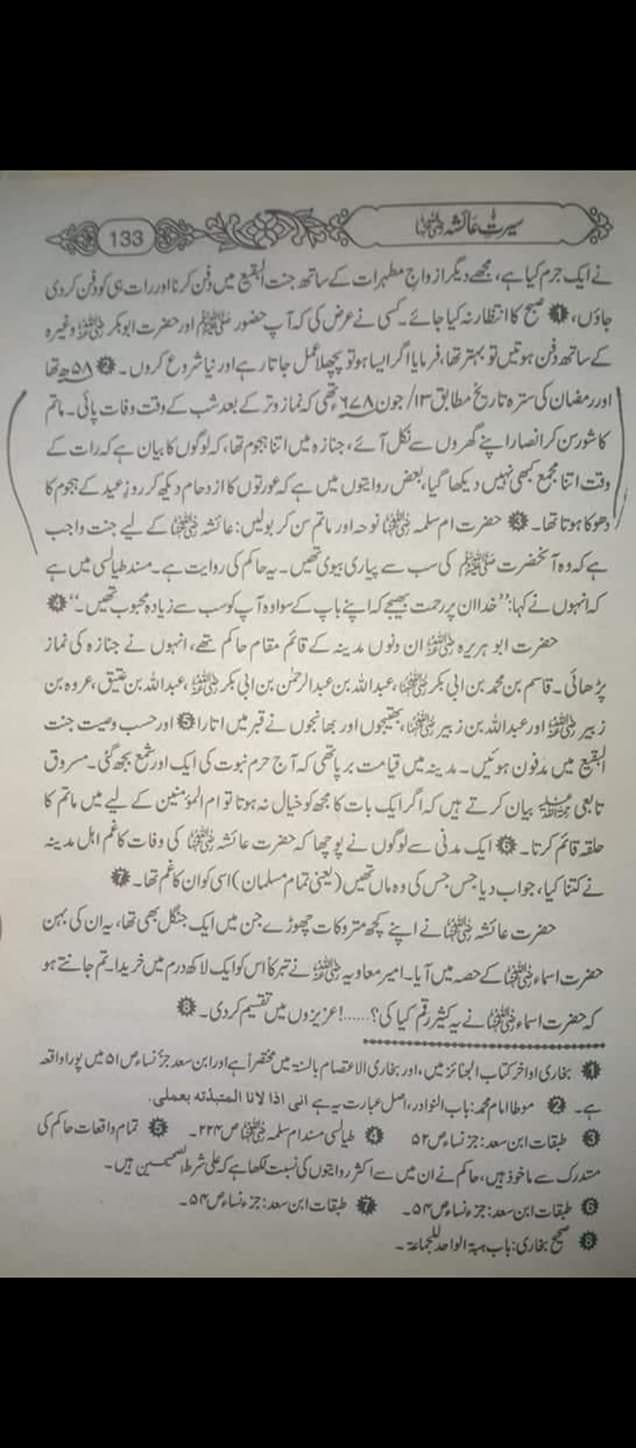 سیرتِ عائشہ رضی اللہ عنہا
133
نے ایک جرم کیا ہے، مجھے دیگر ازواجِ مطہرات کے ساتھ جنت البقیع میں دفن کرنا اور رات ہی کو دفن کر دی
جاؤں، ❶ صبح کا انتظار نہ کیا جائے۔ کسی نے عرض کی کہ آپ حضور ﷺ اور حضرت ابوبکر رضی اللہ عنہ وغیرہ
کے ساتھ دفن ہوتیں تو بہتر تھا، فرمایا اگر ایسا ہو تو پچھلا عمل جاتا رہے اور نیا شروع کروں۔ ❷ ۵۸ھ تھا
اور رمضان کی سترہ تاریخ مطابق ۱۳/ جون ۶۷۸ء تھی کہ نماز وتر کے بعد شب کے وقت وفات پائی۔ ماتم
کا شور سن کر انصار اپنے گھروں سے نکل آئے، جنازہ میں اتنا ہجوم تھا، کہ لوگوں کا بیان ہے کہ رات کے
وقت اتنا مجمع کبھی نہیں دیکھا گیا، بعض روایتوں میں ہے کہ عورتوں کا ازدحام دیکھ کر روزِ عید کے ہجوم کا
دھوکا ہوتا تھا۔ ❸ حضرت ام سلمہ رضی اللہ عنہا نوحہ اور ماتم سن کر بولیں: عائشہ رضی اللہ عنہا کے لیے جنت واجب
ہے کہ وہ آنحضرت ﷺ کی سب سے پیاری بیوی تھیں۔ یہ حاکم کی روایت ہے۔ مسند طیالسی میں ہے
کہ انہوں نے کہا: ’’خدا ان پر رحمت بھیجے کہ اپنے باپ کے سوا وہ آپ کو سب سے زیادہ محبوب تھیں۔‘‘ ❹
حضرت ابو ہریرہ رضی اللہ عنہ ان دنوں مدینہ کے قائم مقام حاکم تھے، انہوں نے جنازہ کی نماز
پڑھائی۔ قاسم بن محمد بن ابی بکر رضی اللہ عنہما، عبداللہ بن عبدالرحمٰن بن ابی بکر رضی اللہ عنہ، عبداللہ بن عتیق، عروہ بن
زبیر رضی اللہ عنہ اور عبداللہ بن زبیر رضی اللہ عنہما، بھتیجوں اور بھانجوں نے قبر میں اتارا ❺ اور حسب وصیت جنت
البقیع میں مدفون ہوئیں۔ مدینہ میں قیامت برپا تھی کہ آج حرم نبوت کی ایک اور شمع بجھ گئی۔ مسروق
تابعی رحمۃ اللہ علیہ بیان کرتے ہیں کہ اگر ایک بات کا مجھ کو خیال نہ ہوتا تو ام المؤمنین کے لیے میں ماتم کا
حلقہ قائم کرتا۔ ❻ ایک مدنی سے لوگوں نے پوچھا کہ حضرت عائشہ رضی اللہ عنہا کی وفات کا غم اہل مدینہ
نے کتنا کیا، جواب دیا جس جس کی وہ ماں تھیں (یعنی تمام مسلمان) اسی کو ان کا غم تھا۔ ❼
حضرت عائشہ رضی اللہ عنہا نے اپنے کچھ متروکات چھوڑے جن میں ایک جنگل بھی تھا، یہ ان کی بہن
حضرت اسماء رضی اللہ عنہا کے حصہ میں آیا۔ امیر معاویہ رضی اللہ عنہ نے تبرکاً اس کو ایک لاکھ درم میں خریدا۔ تم جانتے ہو
کہ حضرت اسماء رضی اللہ عنہا نے یہ کثیر رقم کیا کی؟......! عزیزوں میں تقسیم کر دی۔ ❽
❶ بخاری اواخر کتاب الجنائز میں، اور بخاری الاعتصام بالسنۃ میں مختصراً ہے اور ابن سعد جزٔ نساء ص ۵۱ میں پورا واقعہ
ہے۔ ❷ موطا امام محمد: باب النوادر، اصل عبارت یہ ہے انی اذا لانا المبتدئه بعملی.
❸ طبقات ابن سعد: جزٔ نساء ص ۵۲ ❹ طیالسی مسند ام سلمہ رضی اللہ عنہا ص ۲۲۴۔ ❺ تمام واقعات حاکم کی
متدرک سے ماخوذ ہیں، حاکم نے ان میں سے اکثر روایتوں کی نسبت لکھا ہے کہ علی شرط الصحیحین ہیں۔
❻ طبقات ابن سعد: جزء نساء ص ۵۴۔ ❼ طبقات ابن سعد: جزء نساء ص ۵۴۔
❽ صحیح بخاری: باب ہبۃ الواحد للجماعۃ۔